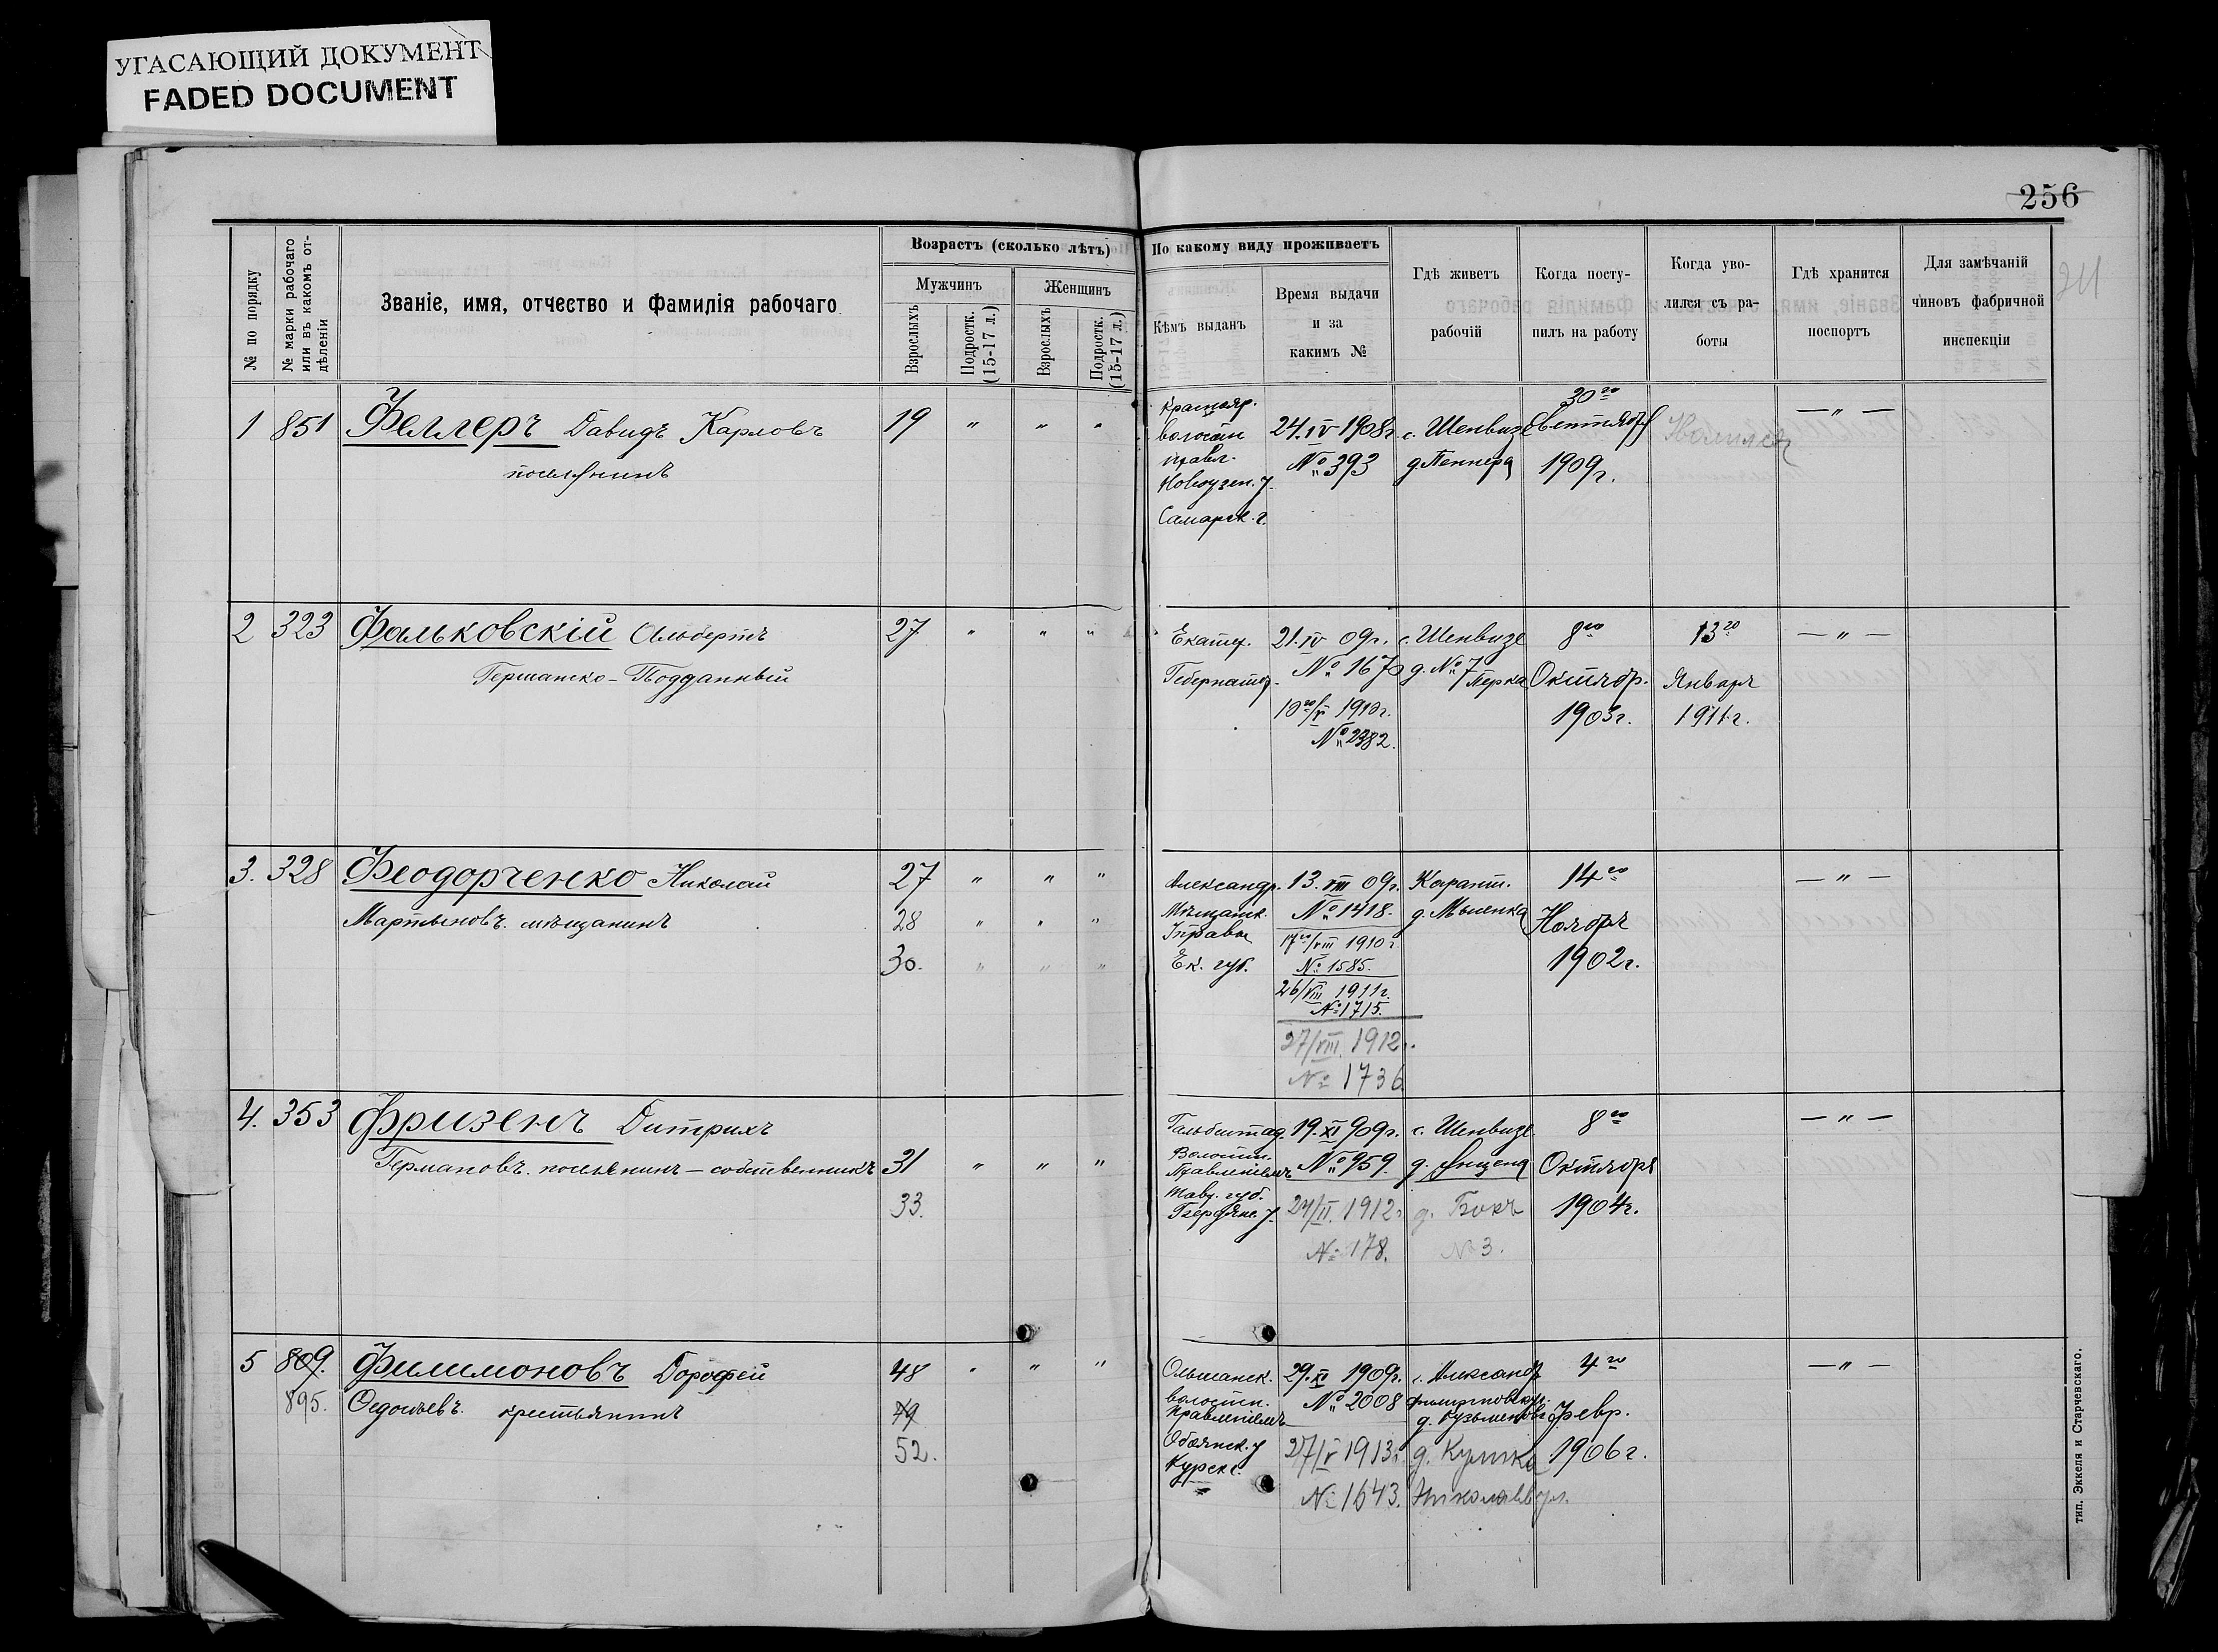 УГАСАЮЩИЙ ДОКУМЕНТ
FADED DOCUMENT
256
№ по порядку
№ марки рабочаго
или въ какомъ от-
дѣленіи
Званіе, имя, отчество и фамилія рабочаго
Возрастъ (сколько лѣтъ)
Мужчинъ
Женщинъ
Взрослыхъ
Подростк.
(15-17 л.)
Взрослыхъ
Подростк.
(15-17 л.)
По какому виду проживаетъ
Кѣмъ выданъ
Время выдачи
и за
какимъ №
Гдѣ живетъ
рабочій
Когда посту-
пилъ на работу
Когда уво-
лился съ ра-
боты
Гдѣ хранится
поспортъ
Для замѣчаній
чиновъ фабричной
инспекціи
1
851
Феллеръ Давидъ Карловъ
поселянинъ
19
"
"
"
Краснояр.
волостн
правл.
Новоузен. у.
Самарск. г.
24.IV 1908г
№ 393
с. Шенвизе
д. Пеннера
30го
Сентября
1909г.
— " —
2
323
Фальковскій Альбертъ
Германско-Подданный
27
"
"
"
Екатер.
Губернатор.
21.IV 09г.
№ 1670
10го/V 1910г.
№ 2382.
с. Шенвизе
д. № 7
8го
Октябр.
1903г.
13го
Января
1911г.
— " —
3.
328
Феодорченко Николай
Мартыновъ. мѣщанинъ
27
"
"
"
28
"
"
"
30.
"
"
"
Александр.
Мѣщанск.
Управы
Ек. губ.
13.VIII 09г.
№ 1418.
17го/VIII 1910г
№ 1585.
26/VIII 1911г.
№ 1715.
27/VIII. 1912г.
№ 1736.
Карант.
14го
Ноября
1902г.
— " —
4.
353
Фризенъ Дитрихъ
Германовъ. поселянинъ – собственникъ
31
"
"
"
33.
Гальбштад.
Волостн.
Правленіемъ
Тавр. губ.
Бердянс. у.
19.XI 909г.
№ 959.
24/II. 1912г
№ 178.
с. Шенвизе
д. Бокъ
№ 3.
8го
Октября
1904г.
— " —
5
809.
895.
Филимоновъ Дорофей
Федосьевъ. крестьянинъ
48
"
"
"
49
52.
Ольшанск.
волостн.
Правленіемъ
Обоянск. у
Курск г.
29.XI 1909г.
№ 2008
27/V 1913г.
№ 1643.
с. Александр
д. Кузьменков
4го
Февр.
1906г.
— " —
тип. Эккеля и Старчевскаго.